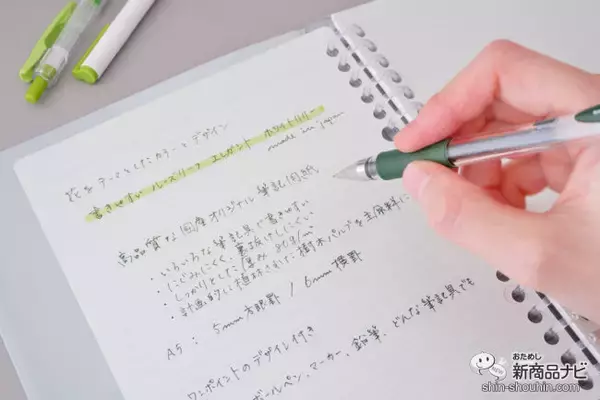 花をテーマとしたカラーとデザイン
書きやすい ルーズリーフ エレガント ホワイトリリー
made in Japan
高品質な国産オリジナル筆記用紙
・いろいろな筆記具で書きやすい
・にじみにくく、裏抜けしにくい
・しっかりとした厚み
・計画的に植林された樹木パルプを主原料に
A5: 5mm方眼罫 / 6mm横罫
ワンポイントのデザイン付き
ボールペン、マーカー、鉛筆、どんな筆記具でも
おためし
新商品ナビ
shin-shouhin.com